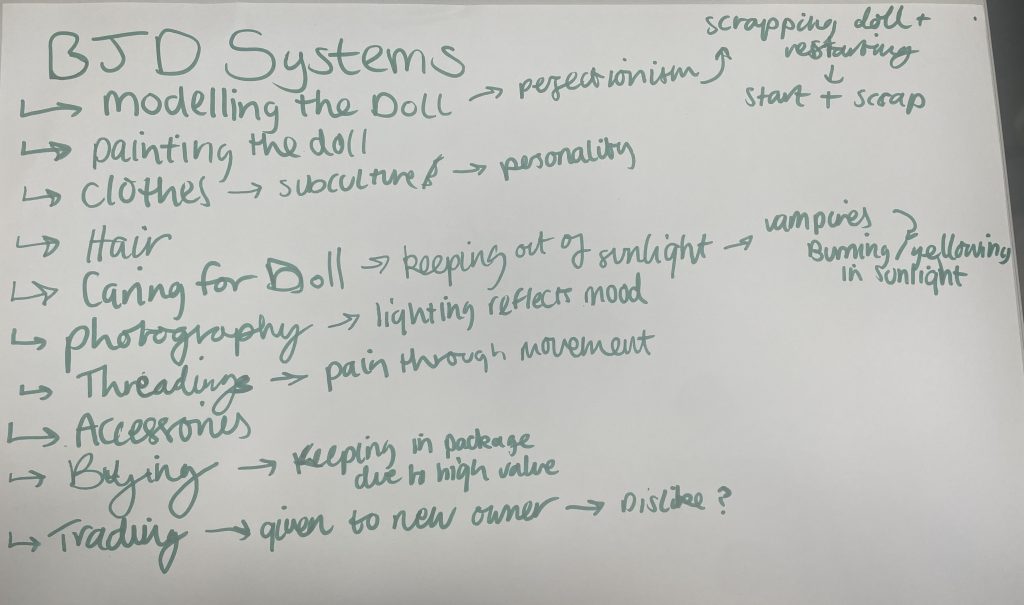 BJD Systems
↳ modelling the Doll → perfectionism → scrapping doll + restarting
↓
start + scrap
↳ painting the doll
↳ Clothes → subcultures → personality
↳ Hair
↳ Caring for Doll → keeping out of sunlight → vampires
Burning / yellowing
in sunlight
↳ photography → lighting reflects mood
↳ Threadings → pain through movement
↳ Accessories
↳ Buying → Keeping in package
due to high value
↳ Trading → given to new owner → Dislike?